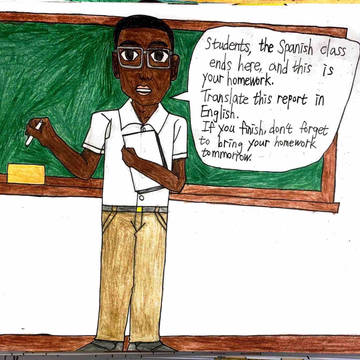 Students, the Spanish class
ends here, and this is
your homework.
Translate this report in
English.
If you finish, don't forget
to bring your homework
tommorrow.